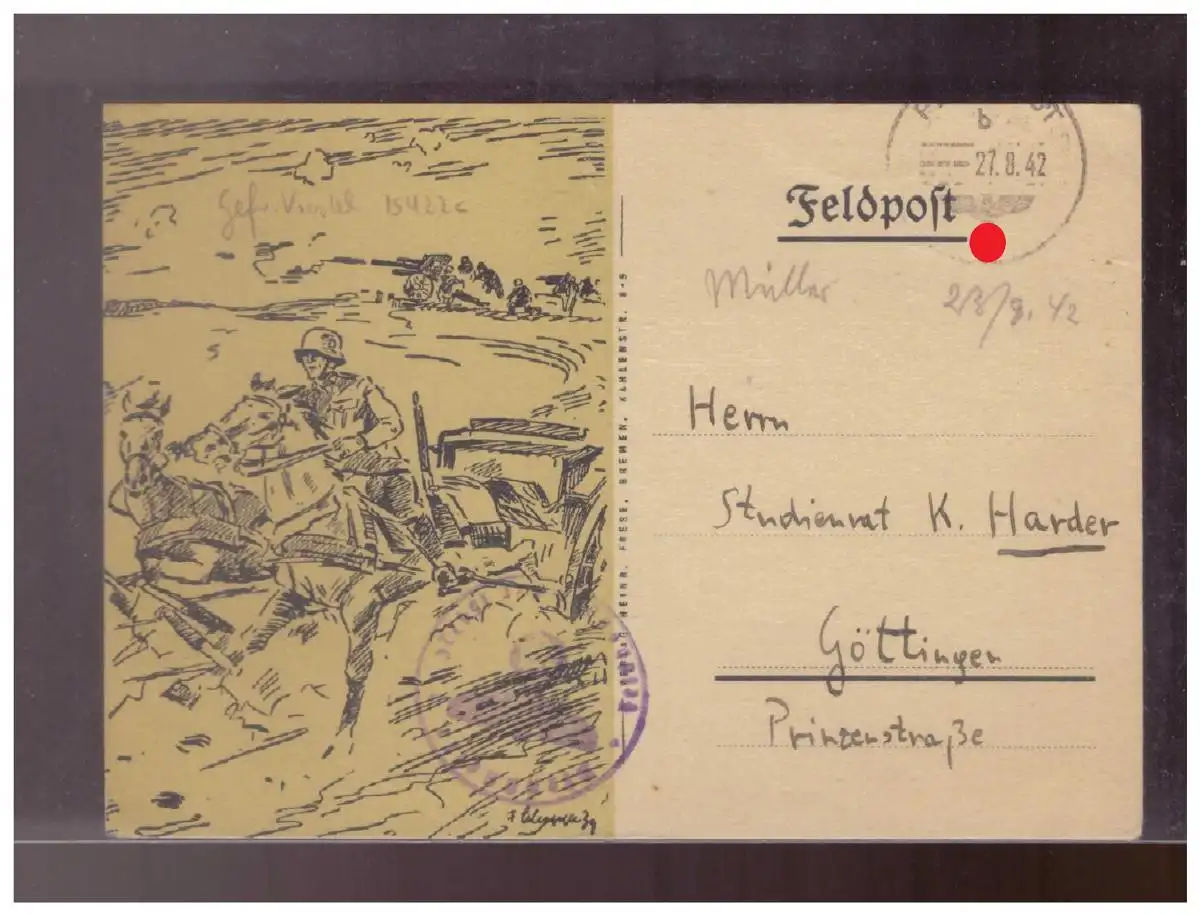 b
27.8.42
Feldpost
Gef. 15422c
Müller 23/8. 42
Herrn
Studienrat K. Harder
Göttingen
Prinzenstraße
HEINR. FRESE, BREMEN, KAHLENSTR. 8-9